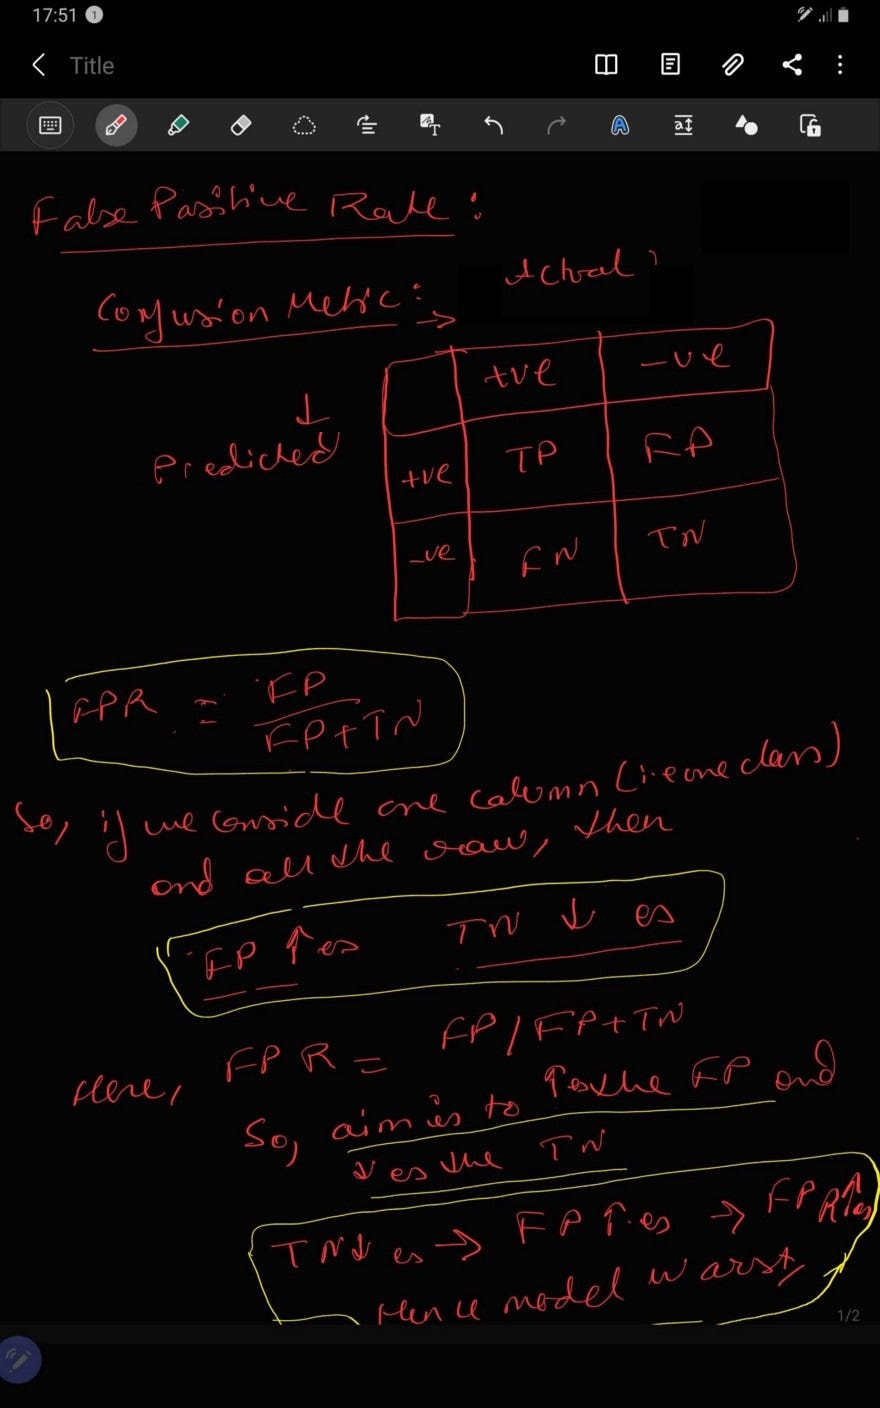 17:51 1
Title
False Positive Rate :
Actual
Confusion Metric : →
+ve -ve
↓
Predicted
+ve TP FP
-ve FN TN
FPR = FP / FP+TN
So, if we conside one column (i.e one class)
and all the raw, then
FP ↑es TN ↓ es
Here, FPR = FP / FP+TN
So, aim is to ↑es the FP and
↓es the TN
TN↓es → FP↑es → FPR↑es
Hence model warst,
1/2